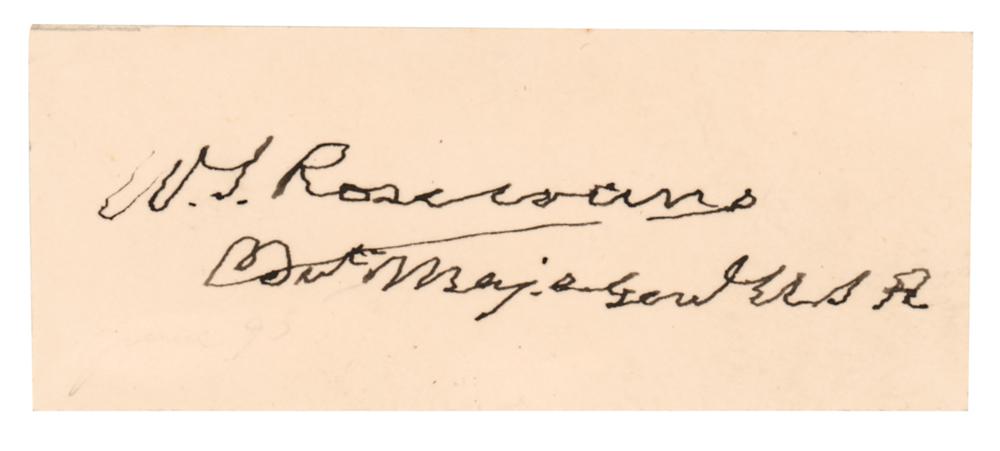 W. S. Rosecrans
Bvt Maj. Genl U S A